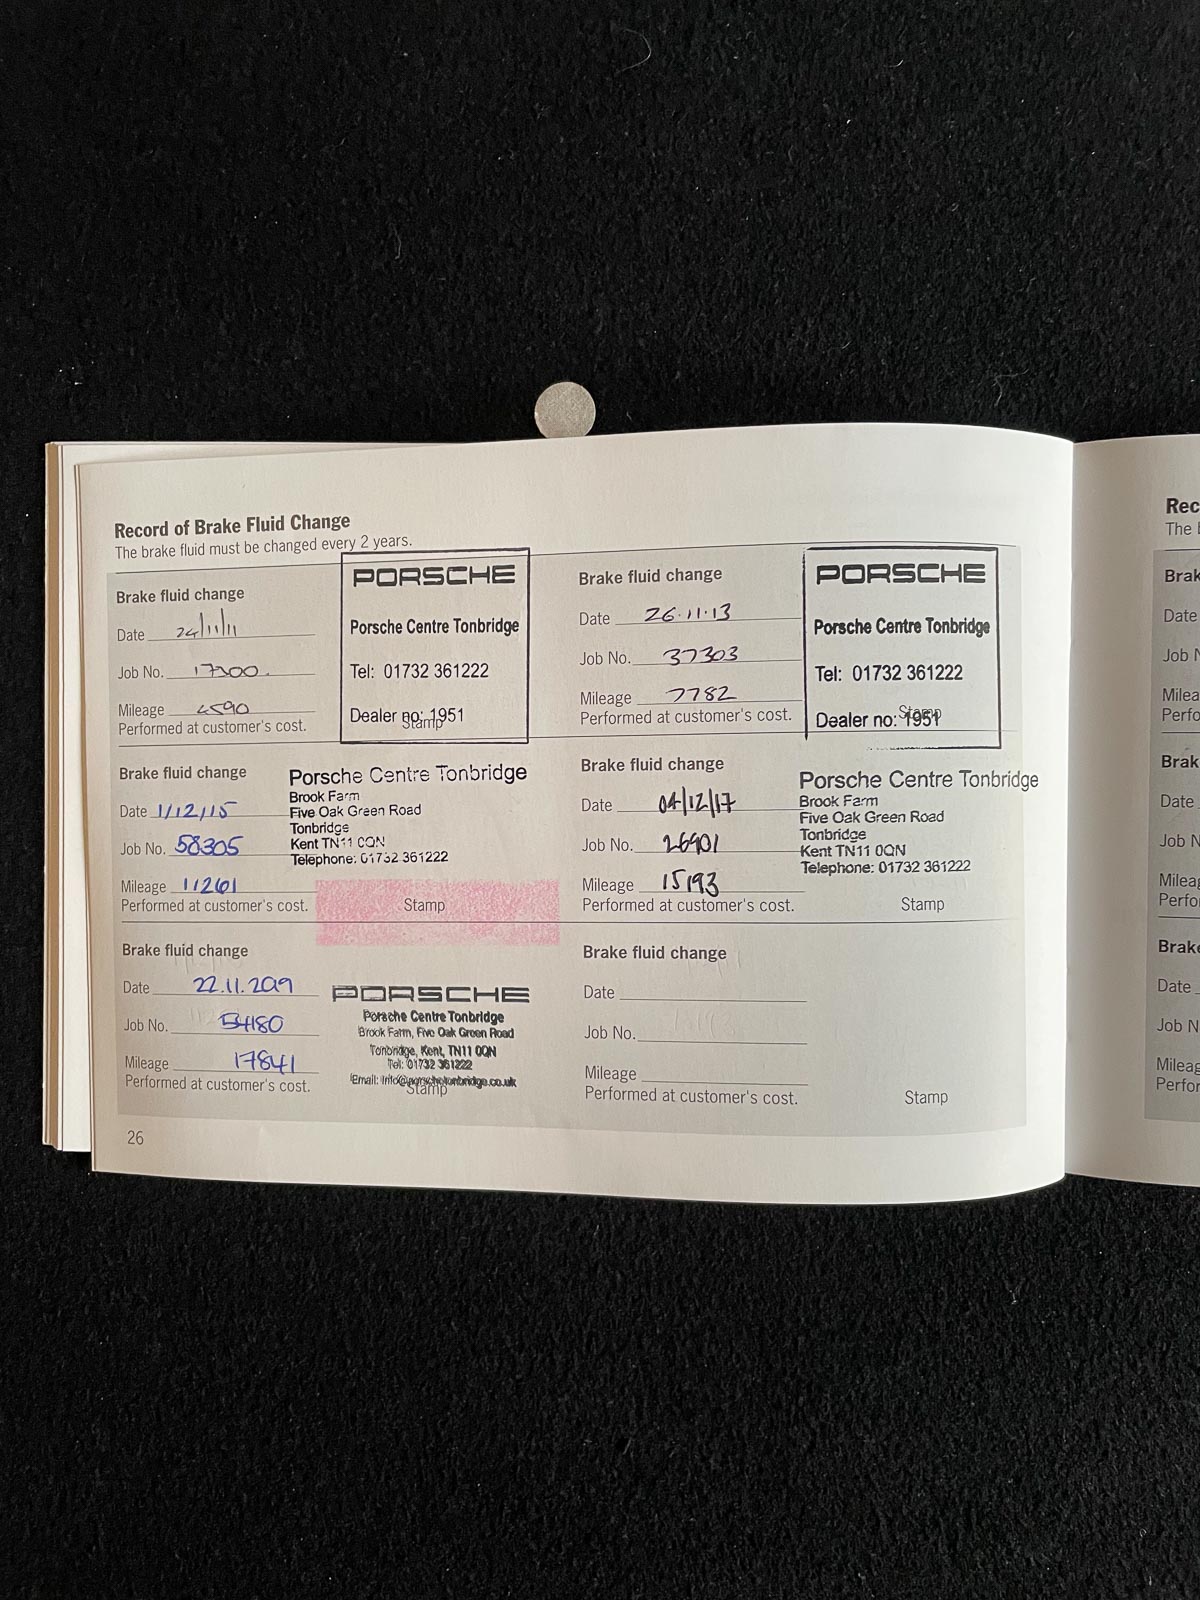 Record of Brake Fluid Change
The brake fluid must be changed every 2 years.
Brake fluid change
Date 24/11/11
Job No. 17300.
Mileage 4590
Performed at customer's cost.
PORSCHE
Porsche Centre Tonbridge
Tel: 01732 361222
Dealer no: 1951
Stamp
Brake fluid change
Date 26.11.13
Job No. 37303
Mileage 7782
Performed at customer's cost.
PORSCHE
Porsche Centre Tonbridge
Tel: 01732 361222
Dealer no: 1951
Stamp
Brake fluid change
Date 1/12/15
Job No. 58305
Mileage 11261
Performed at customer's cost.
Porsche Centre Tonbridge
Brook Farm
Five Oak Green Road
Tonbridge
Kent TN11 0QN
Telephone: 01732 361222
Stamp
Brake fluid change
Date 04/12/17
Job No. 26901
Mileage 15193
Performed at customer's cost.
Porsche Centre Tonbridge
Brook Farm
Five Oak Green Road
Tonbridge
Kent TN11 0QN
Telephone: 01732 361222
Stamp
Brake fluid change
Date 22.11.2019
Job No. 54180
Mileage 17841
Performed at customer's cost.
PORSCHE
Porsche Centre Tonbridge
Brook Farm, Five Oak Green Road
Tonbridge, Kent, TN11 0QN
Tel: 01732 361222
Email: info@porschetonbridge.co.uk
Stamp
Brake fluid change
Date
Job No.
Mileage
Performed at customer's cost.
Stamp
26
Rec
The
Brak
Date
Job N
Milea
Perfo
Brak
Date
Job N
Mileag
Perfo
Brake
Date
Job N
Mileag
Perfor